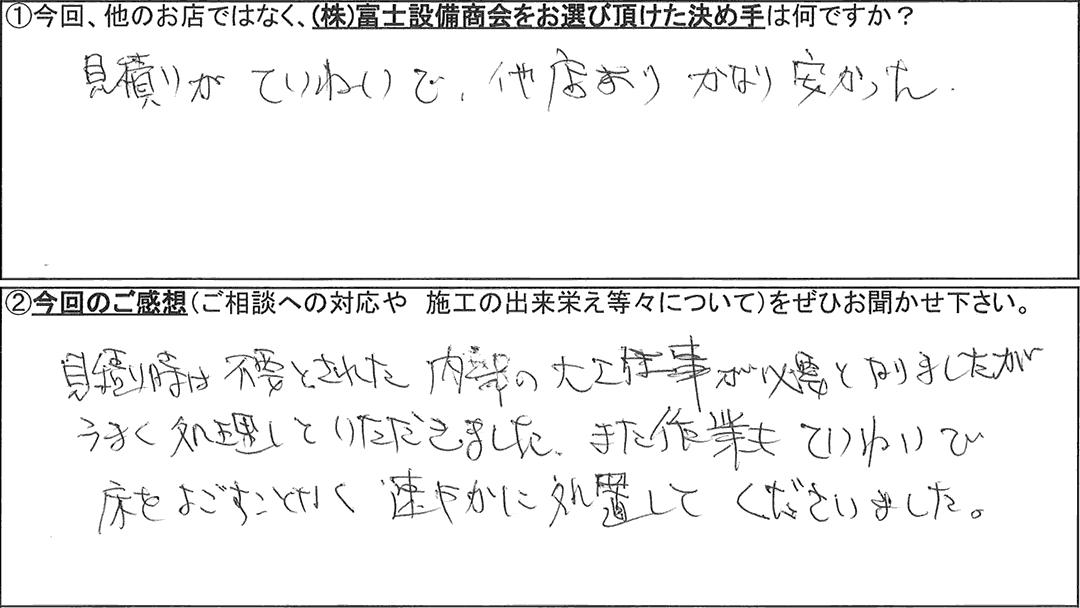 ①今回、他のお店ではなく、(株)富士設備商会をお選び頂けた決め手は何ですか？
見積りが ていねいで、他店より かなり安かった.
②今回のご感想(ご相談への対応や 施工の出来栄え等々について)をぜひお聞かせ下さい。
見積り時は不要とされた 内部の大工仕事が必要となりましたが
うまく処理していただきました、また作業も ていねいで
床をよごすことなく 速やかに処置して くださいました。